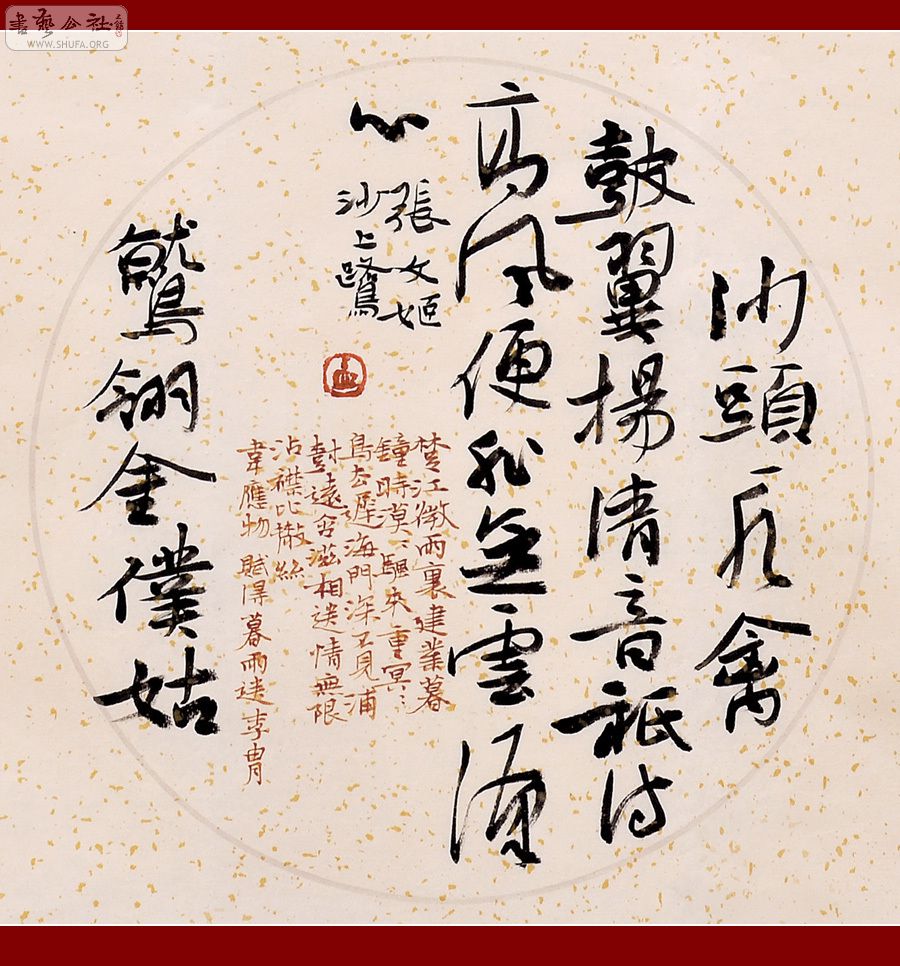 沙頭一水禽
皷翼揚清音祇待
高風便非無雲漢
心
張文姬
沙上鷺
楚江微雨裏建業暮
鐘時漠〻颿來重冥〻
鳥去遲海門深不見浦
樹遠含滋相送情無限
沾襟比散絲
韋應物 賦得暮雨送李冑
鷲翎金僕姑
書藝公社
WWW.SHUFA.ORG